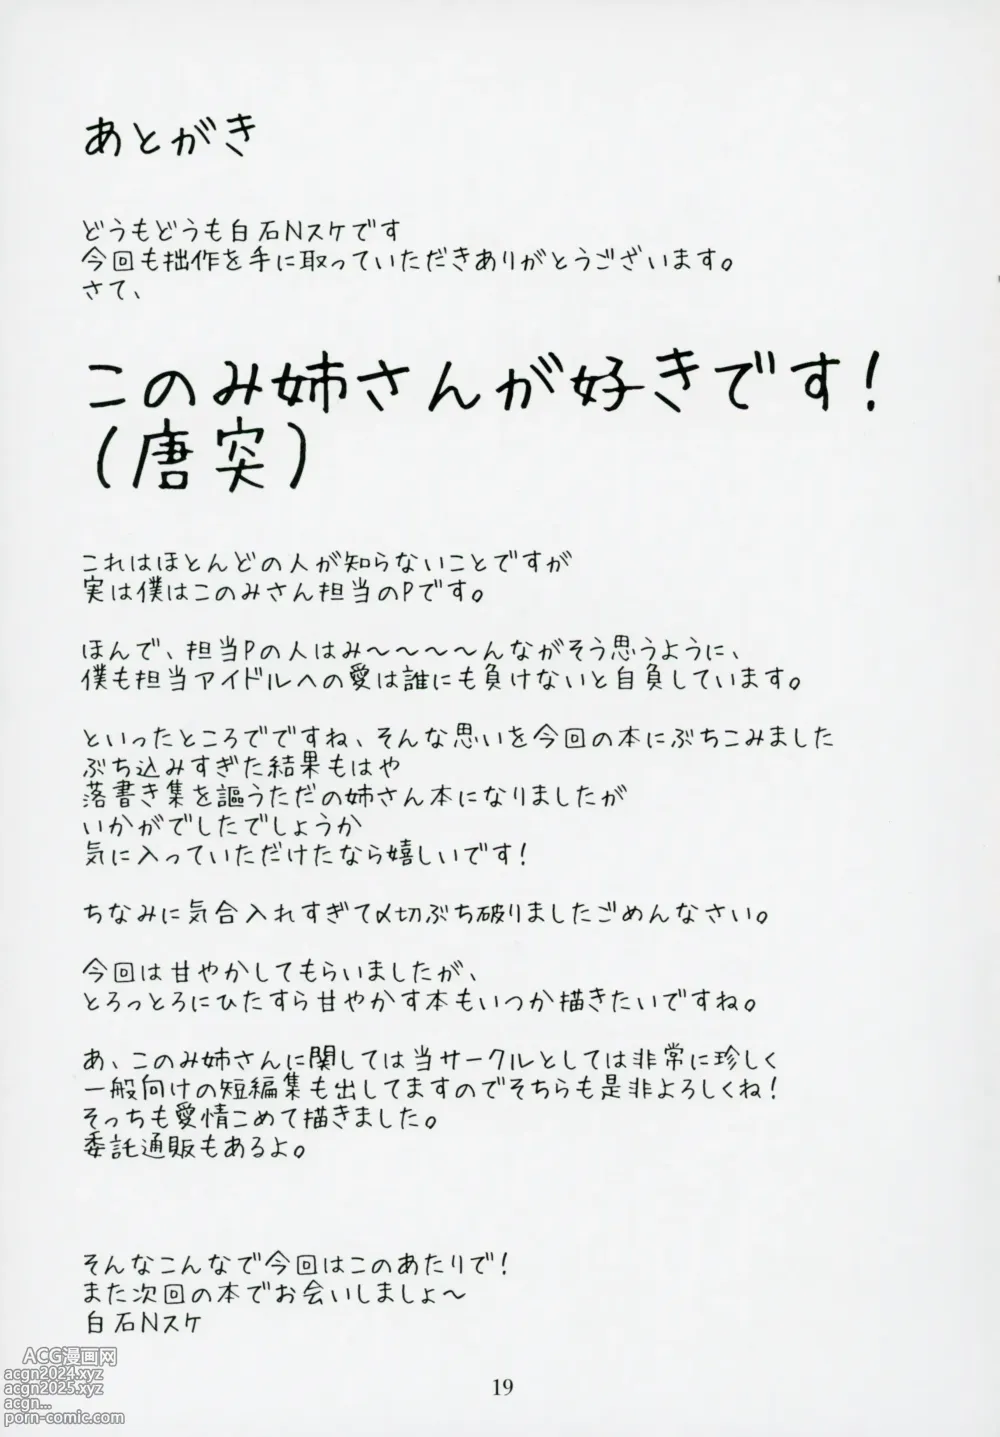 あとがき
どうもどうも白石Nスケです
今回も拙作を手に取っていただきありがとうございます。
さて、
このみ姉さんが好きです!
(唐突)
これはほとんどの人が知らないことですが
実は僕はこのみさん担当のPです。
ほんで、担当Pの人はみ～～～～んながそう思うように、
僕も担当アイドルへの愛は誰にも負けないと自負しています。
といったところでですね、そんな思いを今回の本にぶちこみました
ぶち込みすぎた結果もはや
落書き集を謳うただの姉さん本になりましたが
いかがでしたでしょうか
気に入っていただけたなら嬉しいです!
ちなみに気合入れすぎて〆切ぶち破りましたごめんなさい。
今回は甘やかしてもらいましたが、
とろっとろにひたすら甘やかす本もいつか描きたいですね。
あ、このみ姉さんに関しては当サークルとしては非常に珍しく
一般向けの短編集も出してますのでそちらも是非よろしくね!
そっちも愛情こめて描きました。
委託通販もあるよ。
そんなこんなで今回はこのあたりで!
また次回の本でお会いしましょ～
白石Nスケ
ACG漫画网
acgn2024.xyz
acgn2025.xyz
acgn...
porn-comic.com
19